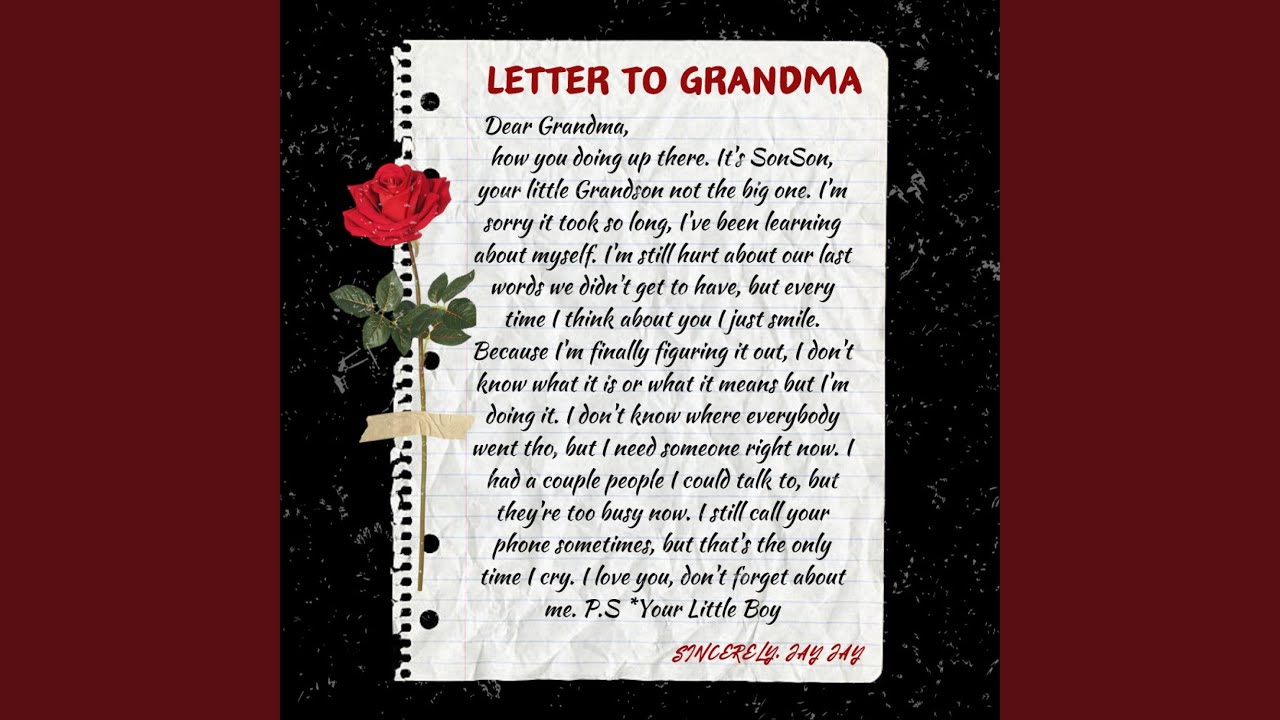 LETTER TO GRANDMA
Dear Grandma,
how you doing up there. It's SonSon,
your little Grandson not the big one. I'm
sorry it took so long, I've been learning
about myself. I'm still hurt about our last
words we didn't get to have, but every
time I think about you I just smile.
Because I'm finally figuring it out, I don't
know what it is or what it means but I'm
doing it. I don't know where everybody
went tho, but I need someone right now. I
had a couple people I could talk to, but
they're too busy now. I still call your
phone sometimes, but that's the only
time I cry. I love you, don't forget about
me. P.S *Your Little Boy
SINCERELY. JAY JAY